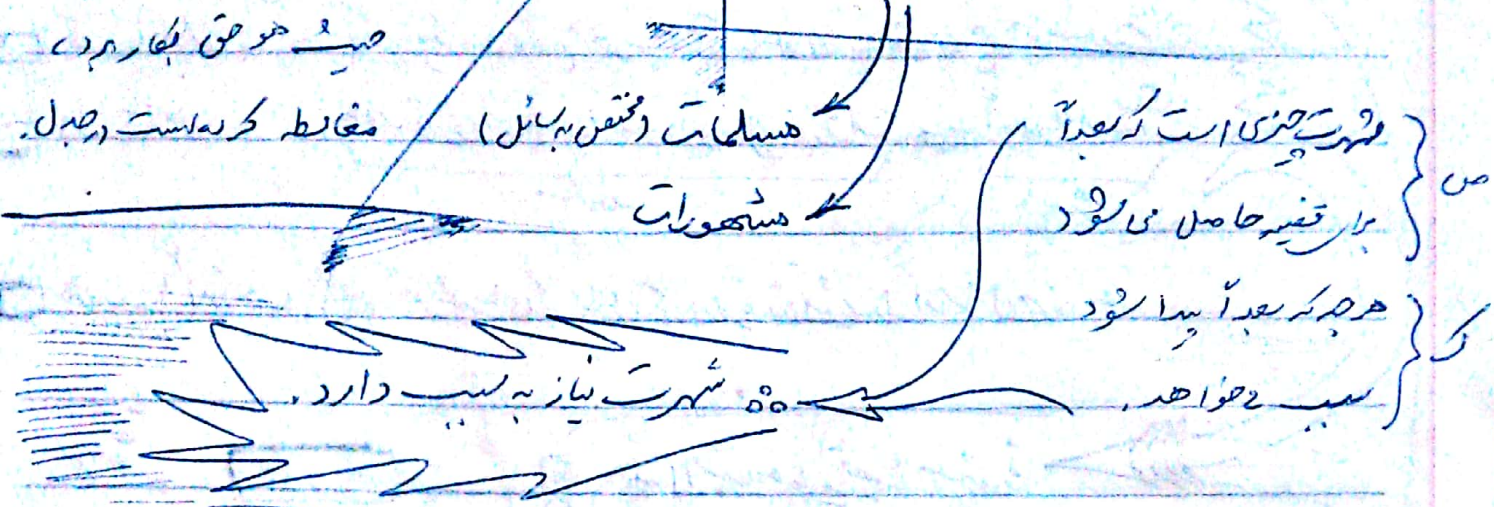 حیث هو حق بکار برد،
مغالطه کرده است در جدل.
مسلمات (مختص به سائل)
مشهورات
ص
شهرت چیزی است که بعداً
برای قضیه حاصل می‌شود
ک
هرچه که بعداً پیدا شود
سبب می‌خواهد.
∴ شهرت نیاز به سبب دارد.